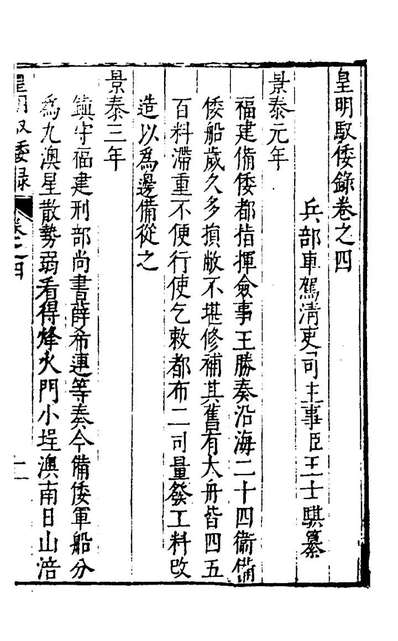 皇明馭倭錄卷之四
兵部車駕清吏司主事臣王士騏纂
景泰元年
福建備倭都指揮僉事王勝奏沿海二十四衛備
倭船歲久多損敝不堪修補其舊有大舟皆四五
百料滯重不便行使乞敕都布二司量發工料改
造以為邊備從之
景泰三年
鎮守福建刑部尚書薛希璉等奏今備倭軍船分
為九澳星散勢弱看得烽火門小埕澳南日山浯
皇明馭倭錄
卷之四
一